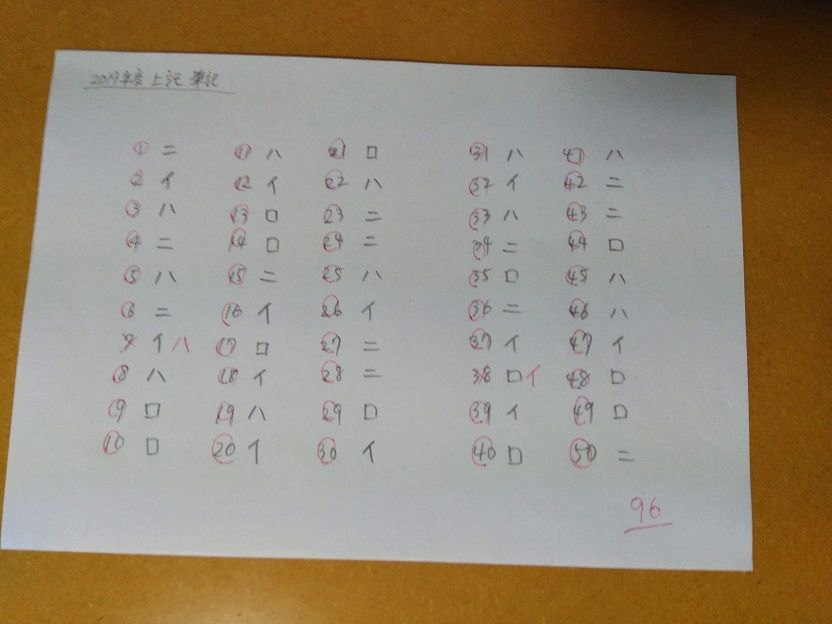 2019年度 上記 筆記
① ニ ⑪ ハ ㉑ ロ ㉛ ハ ㊶ ハ
② イ ⑫ イ ㉒ ハ ㉜ イ ㊷ ニ
③ ハ ⑬ ロ ㉓ ニ ㉝ ハ ㊸ ニ
④ ニ ⑭ ロ ㉔ ニ ㉞ ニ ㊹ ロ
⑤ ハ ⑮ ニ ㉕ ハ ㉟ ロ ㊺ ハ
⑥ ニ ⑯ イ ㉖ イ ㊱ ニ ㊻ ハ
7 イ ハ ⑰ ロ ㉗ ニ ㊲ イ ㊼ イ
⑧ ハ ⑱ イ ㉘ ニ 38 ロ イ ㊽ ロ
⑨ ロ ⑲ ハ ㉙ ロ ㊴ イ ㊾ ロ
⑩ ロ ⑳ イ ㉚ イ ㊵ ロ ㊿ ニ
96